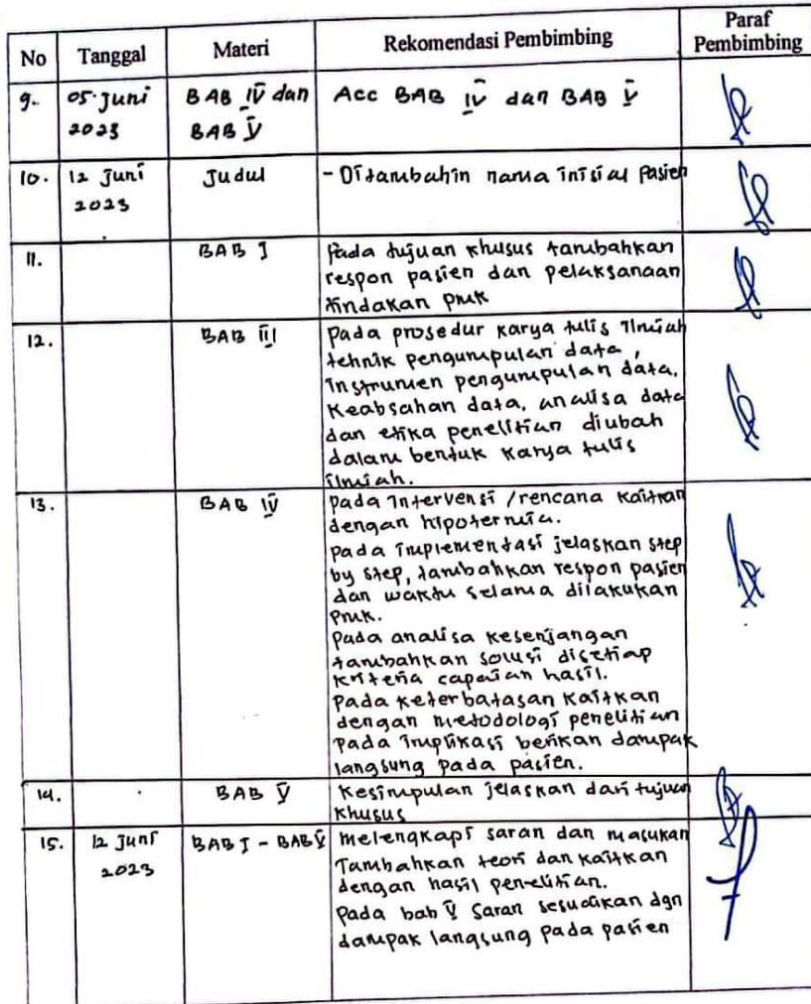 No Tanggal Materi Rekomendasi Pembimbing Paraf Pembimbing
9. 05 Juni 2023 BAB IV dan BAB V Acc BAB IV dan BAB V
10. 12 Juni 2023 Judul - Ditambahin nama inisial Pasien
11. BAB I Pada tujuan khusus tambahkan
respon pasien dan pelaksanaan
tindakan pmk
12. BAB III Pada prosedur karya tulis Ilmiah
tehnik pengumpulan data,
Instrumen pengumpulan data,
Keabsahan data, analisa data
dan etika penelitian diubah
dalam bentuk karya tulis
ilmiah.
13. BAB IV Pada Intervensi / rencana kaitkan
dengan hipotermia.
Pada implementasi jelaskan step
by step, tambahkan respon pasien
dan waktu selama dilakukan
PMK.
Pada analisa kesenjangan
tambahkan solusi disetiap
kriteria capaian hasil.
Pada keterbatasan kaitkan
dengan metodologi penelitian
Pada implikasi berikan dampak
langsung pada pasien.
14. BAB V Kesimpulan jelaskan dari tujuan
khusus
15. 12 Juni 2023 BAB I - BAB V Melengkapi saran dan masukan
Tambahkan teori dan kaitkan
dengan hasil penelitian.
Pada bab V Saran sesuaikan dgn
dampak langsung pada pasien